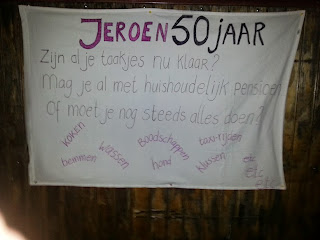 JEROEN 50 JAAR
Zijn al je taakjes nu klaar?
Mag je al met huishoudelijk pensioen
Of moet je nog steeds alles doen?
koken
wassen
Boodschappen
taxi-rijden
bommen
hond
klussen
etc
etc
etc